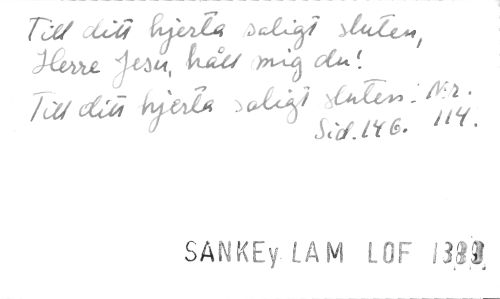 Till ditt hjerta saligt sluten,
Herre Jesu, håll mig du!
Till ditt hjerta saligt sluten: Nr.
Sid. 146. 114.
SANKEy LAM LOF